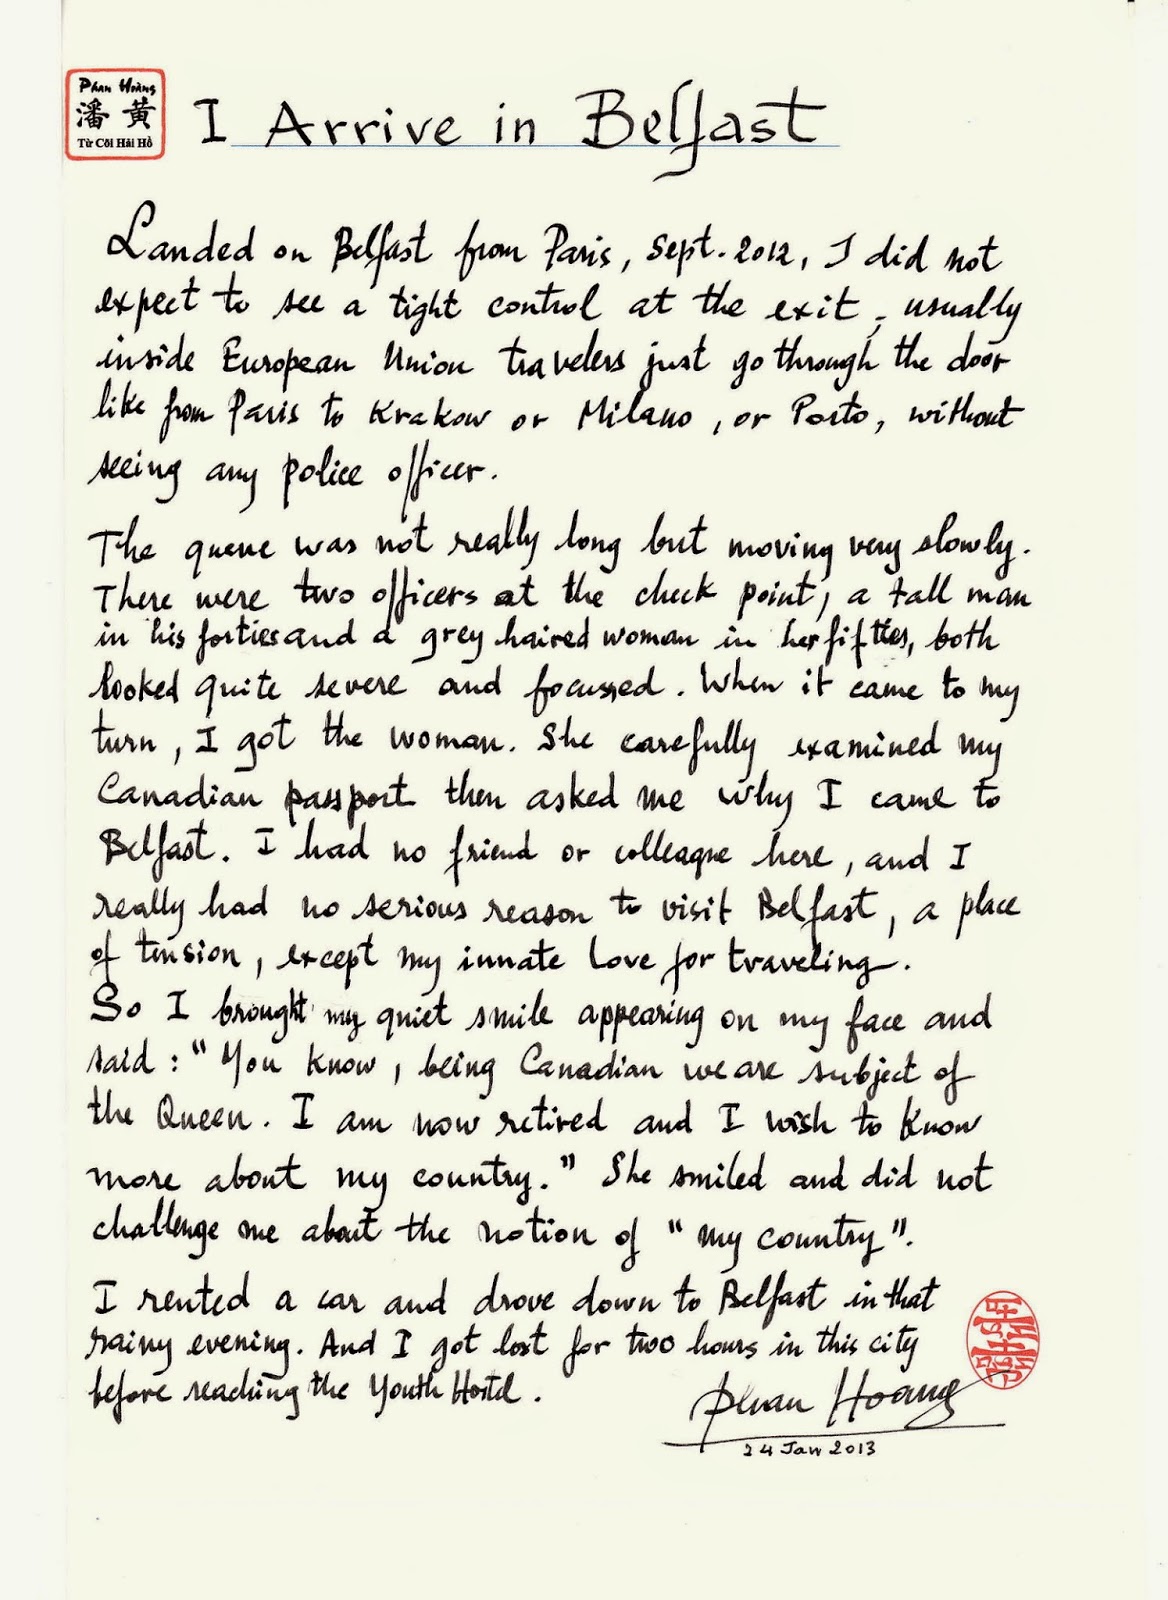 Phan Hoàng
潘 黄
Từ Cõi Hải Hồ
I Arrive in Belfast
Landed on Belfast from Paris, Sept. 2012, I did not
expect to see a tight control at the exit ; usually
inside European Union travelers just go through the door
like from Paris to Krakow or Milano, or Porto, without
seeing any police officer.
The queue was not really long but moving very slowly.
There were two officers at the check point, a tall man
in his forties and a grey haired woman in her fifties, both
looked quite severe and focussed. When it came to my
turn, I got the woman. She carefully examined my
Canadian passport then asked me why I came to
Belfast. I had no friend or colleague here, and I
really had no serious reason to visit Belfast, a place
of tension, except my innate love for traveling.
So I brought my quiet smile appearing on my face and
said : "You know, being Canadian we are subject of
the Queen. I am now retired and I wish to know
more about my country." She smiled and did not
challenge me about the notion of "my country".
I rented a car and drove down to Belfast in that
rainy evening. And I got lost for two hours in this city
before reaching the Youth Hostel.
Phan Hoang
24 Jan 2013